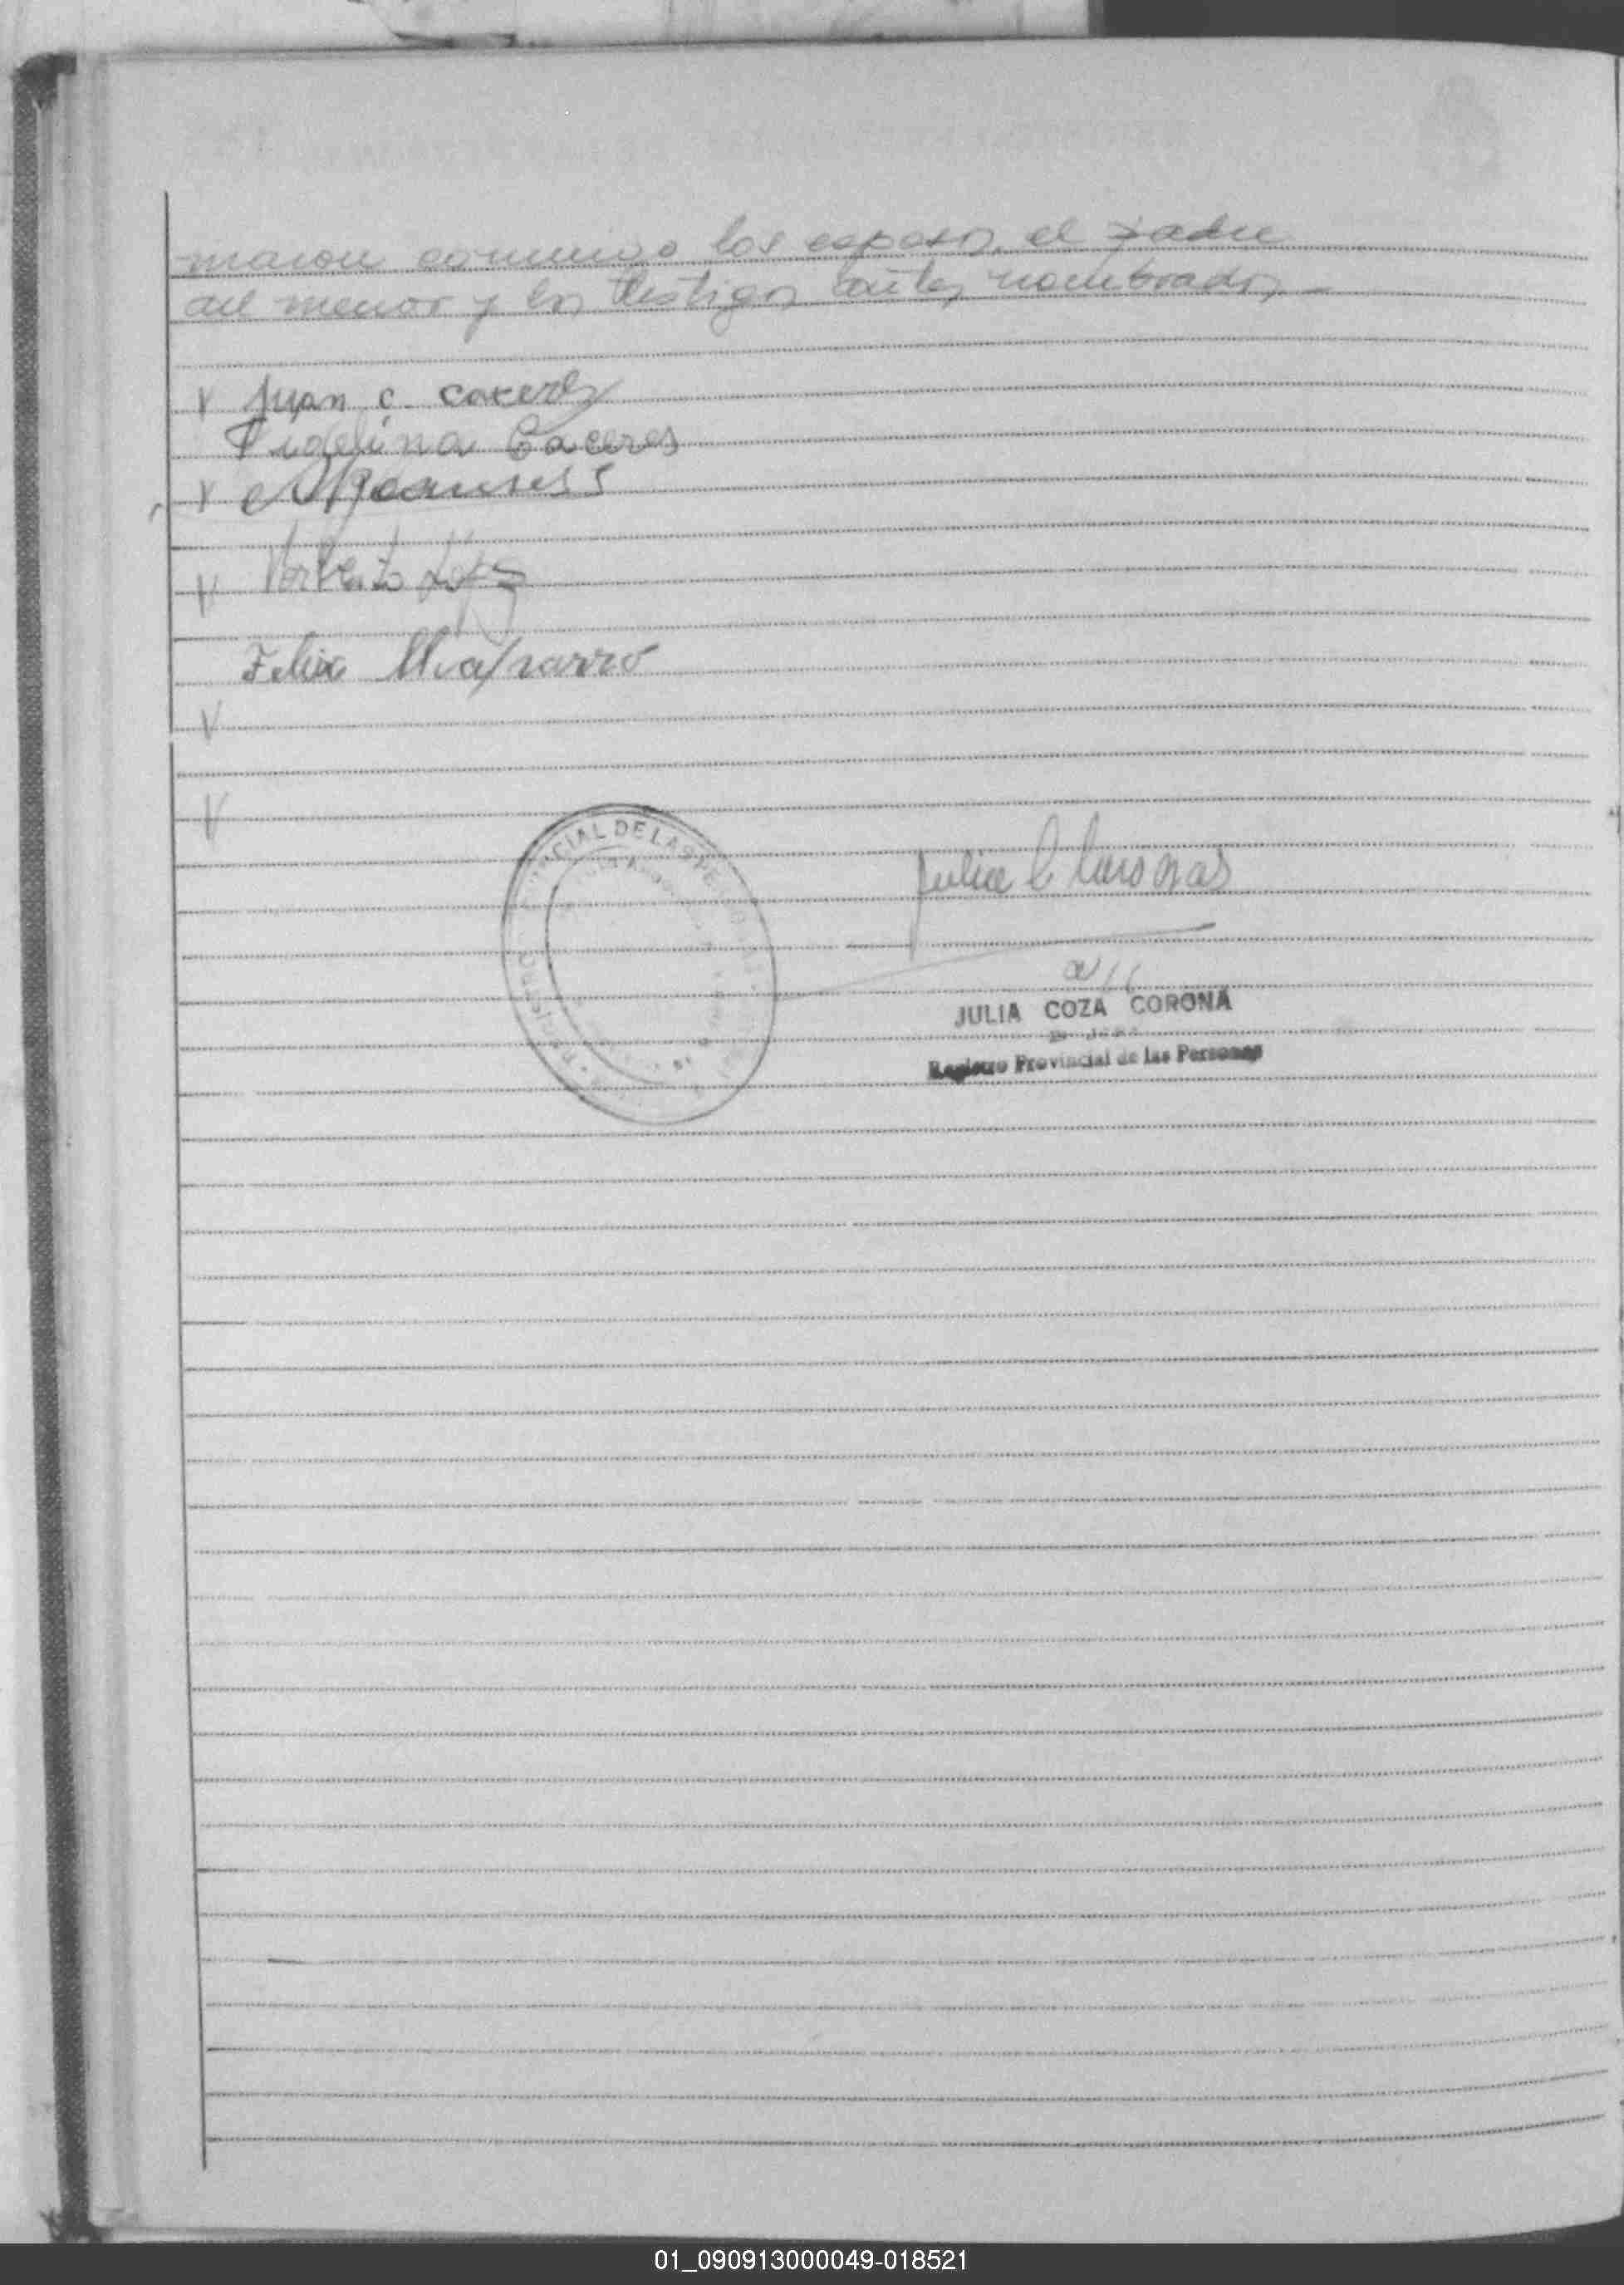 maron conmigo los esposos, el padre
del menor y los testigos antes nombrados.-
Juan C. Cacerez
Fidelina Caceres
Norberto Lopez
Felix Chaparro
CIAL DE LAS PE
Julia C Coronas
JULIA COZA CORONA
Registro Provincial de las Personas
01_090913000049-018521